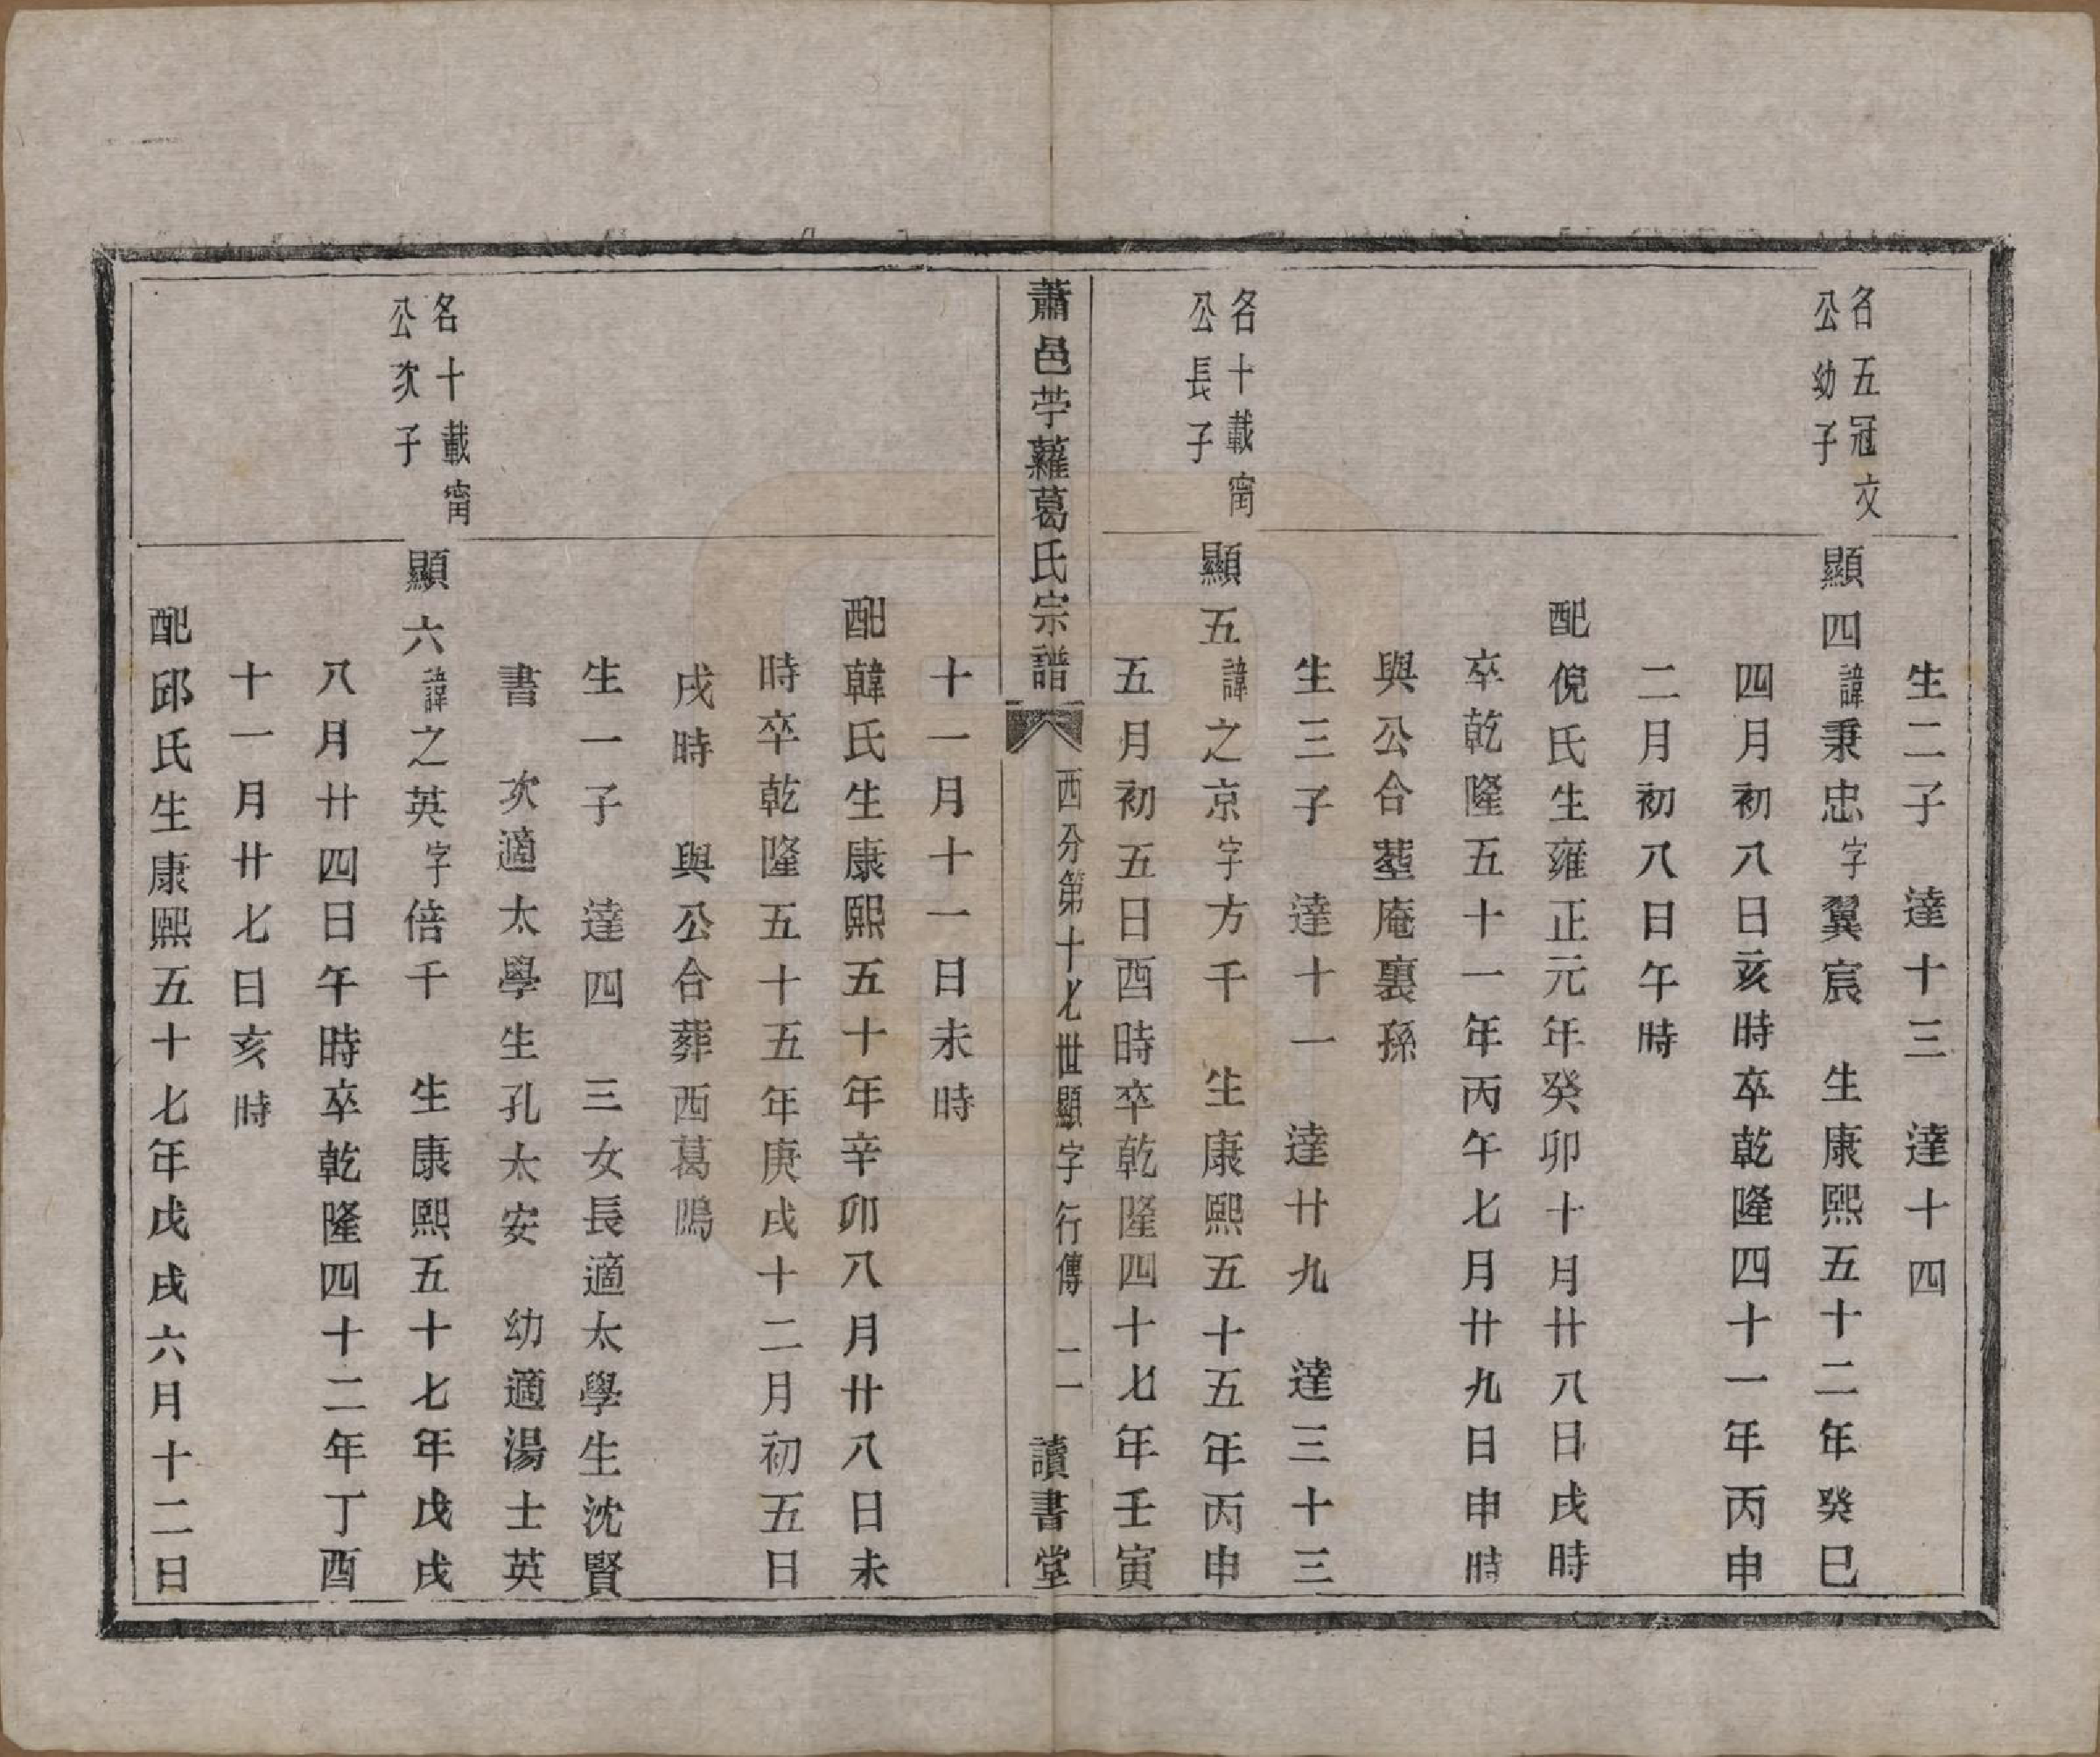 生二子　達十三　達十四
名五冠文
公幼子
顯四諱秉忠字翼宸　生康熙五十二年癸巳
四月初八日亥時卒乾隆四十一年丙申
二月初八日午時
配倪氏生雍正元年癸卯十月廿八日戌時
卒乾隆五十一年丙午七月廿九日申時
與公合塟庵裏孫
生三子　達十一　達廿九　達三十三
名十載甯
公長子
顯五諱之京字方千　生康熙五十五年丙申
五月初五日酉時卒乾隆四十七年壬寅
蕭邑苧蘿葛氏宗譜
西分第十七世顯字行傳　二一
讀書堂
十一月十一日未時
配韓氏生康熙五十年辛卯八月廿八日未
時卒乾隆五十五年庚戌十二月初五日
戌時　與公合葬西葛塢
生一子　達四　三女長適太學生沈賢
書　次適太學生孔太安　幼適湯士英
名十載甯
公次子
顯六諱之英字倍千　生康熙五十七年戊戌
八月廿四日午時卒乾隆四十二年丁酉
十一月廿七日亥時
配邱氏生康熙五十七年戊戌六月十二日